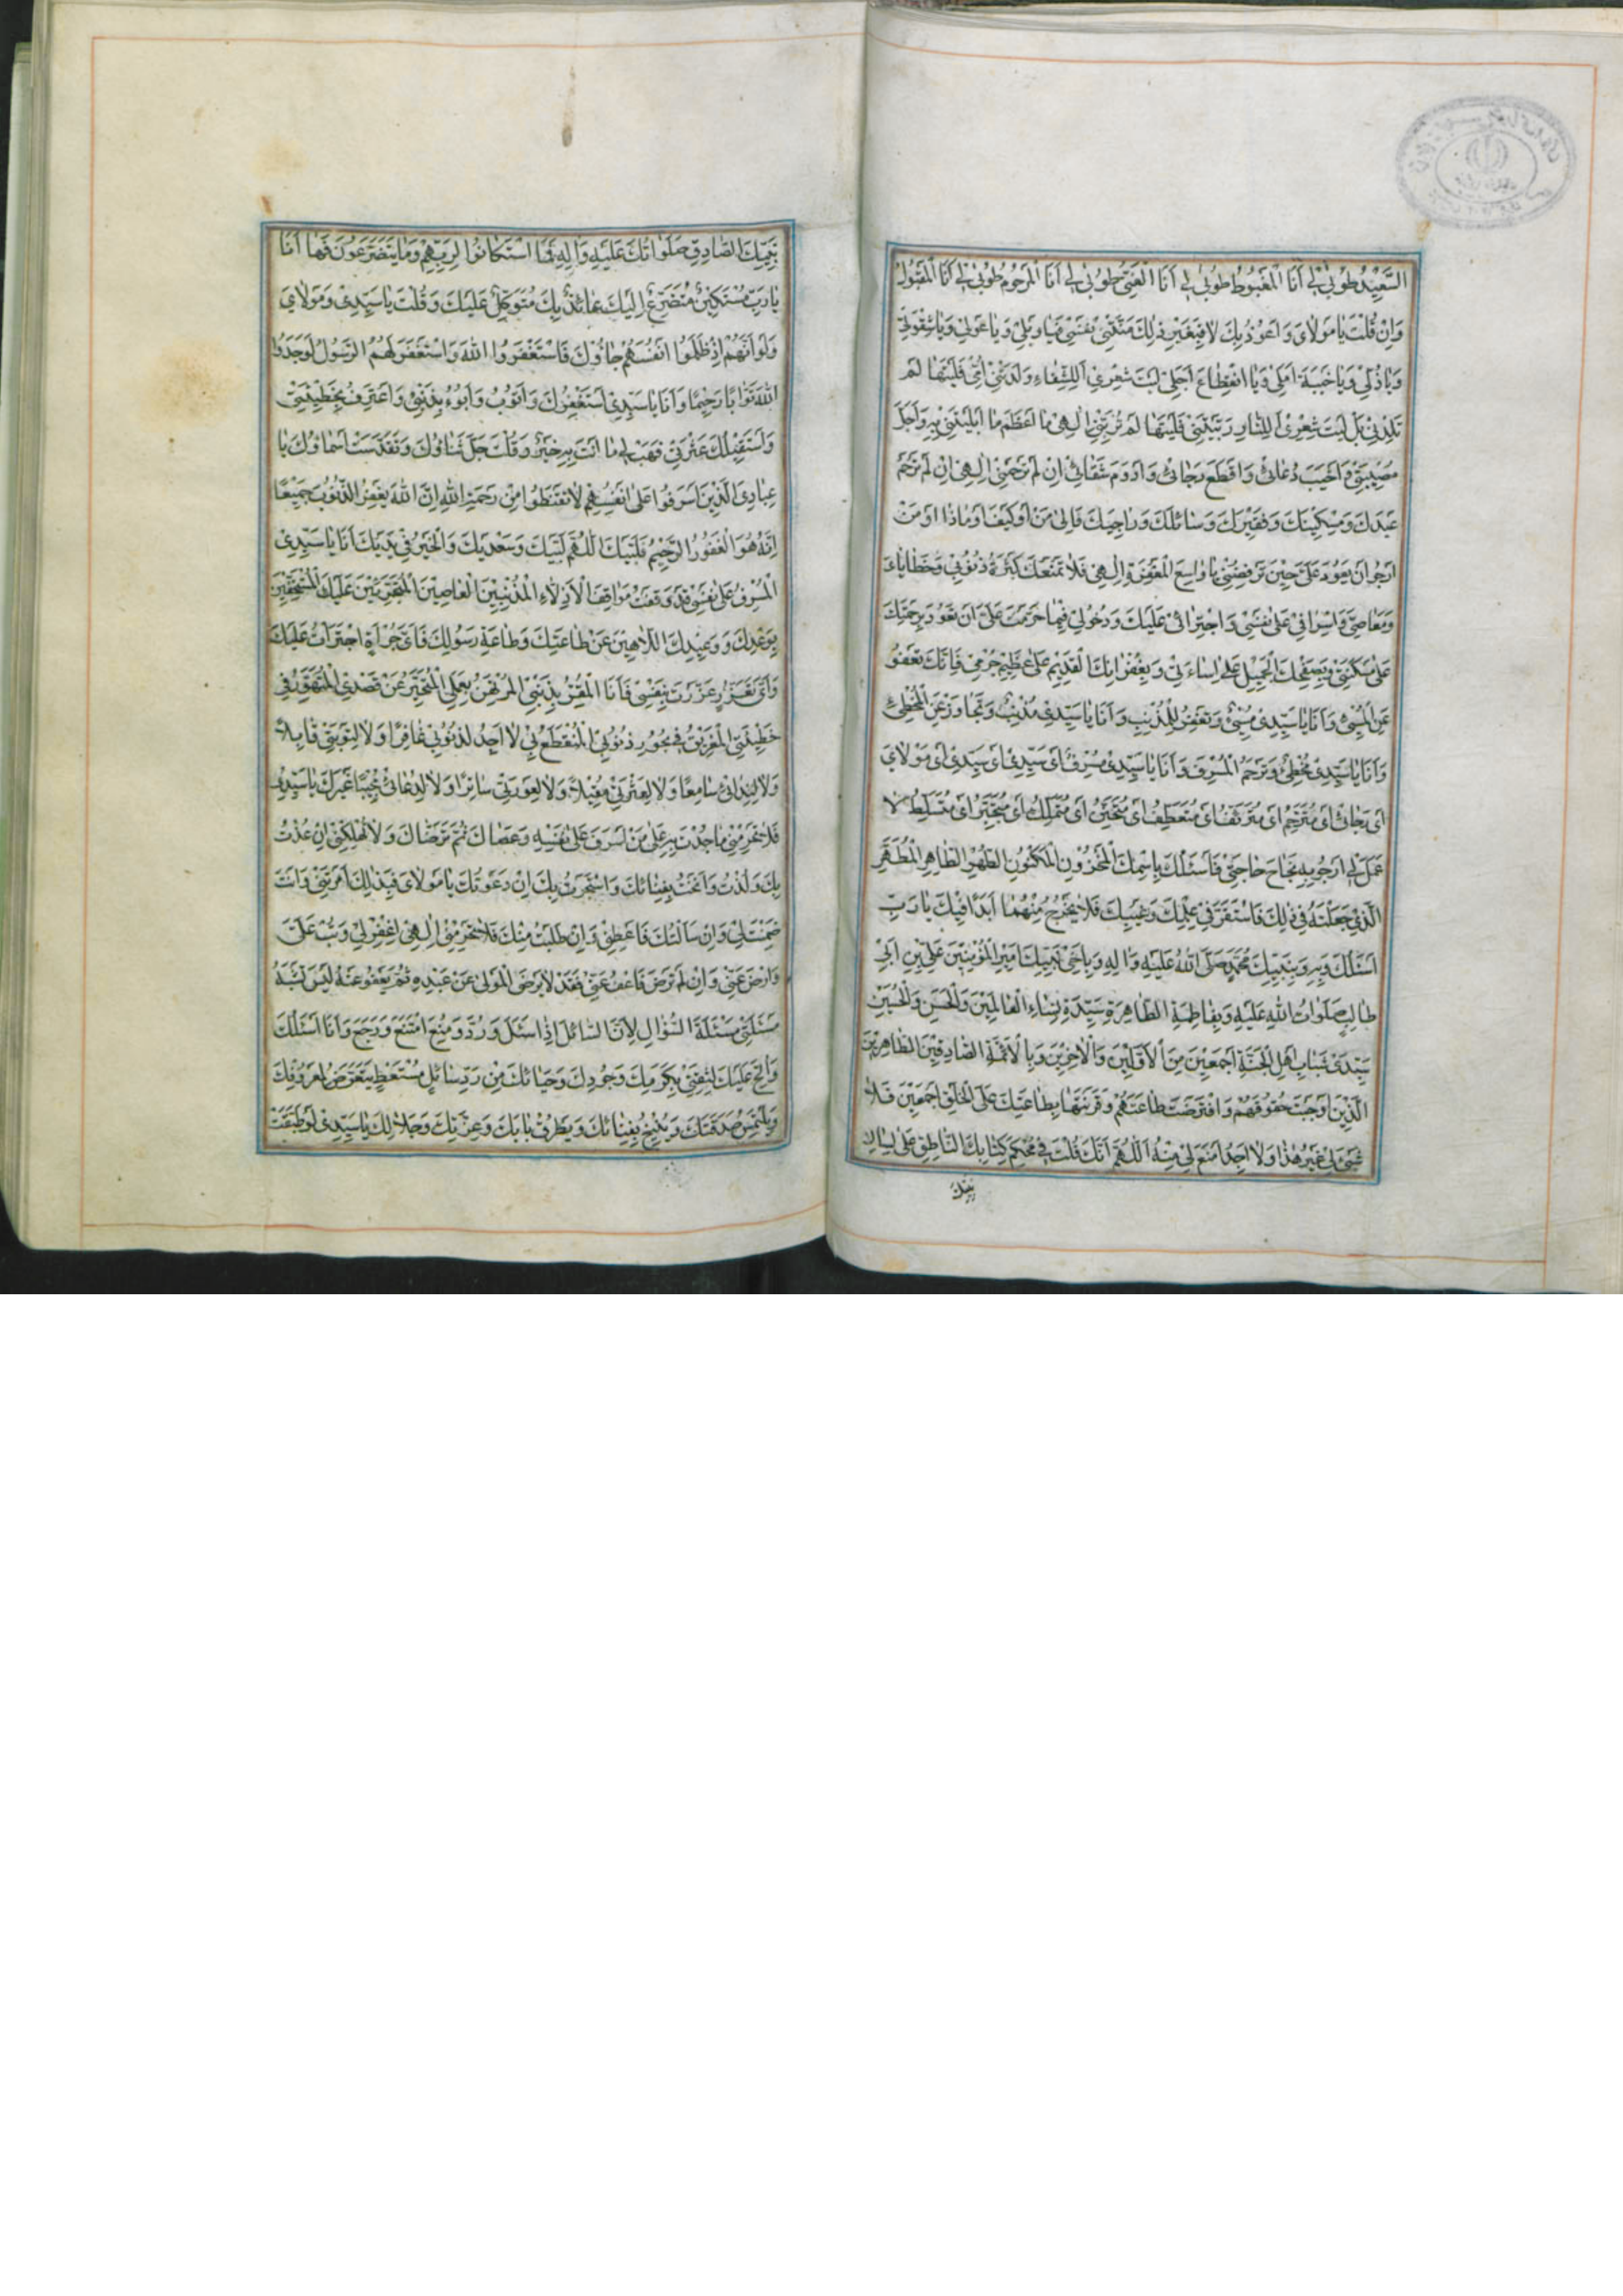 السَّعِيدُ طُوبىٰ لِي أَنَا الْمَغْبُوطُ طُوبىٰ لِي أَنَا الْغَنِيُّ طُوبىٰ لِي أَنَا الْمَرْحُومُ طُوبىٰ لِي أَنَا الْمَقْبُولُ
وَإِنْ قُلْتَ يَا مَوْلَايَ وَأَعُوذُ بِكَ لَا فَبِغَيْرِ ذٰلِكَ مَنَّتْنِي نَفْسِي فَيَا وَيْلِي وَيَا عَوْلِي وَيَا شِقْوَتِي
وَيَا ذُلِّي وَيَا خَيْبَةَ أَمَلِي وَيَا انْقِطَاعَ أَجَلِي لَيْتَ شِعْرِي أَلِلشَّقَاءِ وَلَدَتْنِي أُمِّي فَلَيْتَهَا لَمْ
تَلِدْنِي بَلْ لَيْتَ شِعْرِي أَلِلنَّارِ رَبَّتْنِي فَلَيْتَهَا لَمْ تُرَبِّنِي إِلٰهِي مَا أَعْظَمَ مَا ابْتَلَيْتَنِي بِهِ وَأَجَلَّ
مُصِيبَتِي وَأَخْيَبَ دُعَائِي وَأَقْطَعَ رَجَائِي وَأَدْوَمَ شَقَائِي إِنْ لَمْ تَرْحَمْنِي إِلٰهِي إِنْ لَمْ تَرْحَمْ
عَبْدَكَ وَمِسْكِينَكَ وَفَقِيرَكَ وَسَائِلَكَ وَرَاجِيَكَ فَإِلىٰ مَنْ أَوْ كَيْفَ أَوْ مَاذَا أَوْ مَنْ
أَرْجُو أَنْ يَعُودَ عَلَيَّ حِينَ تَرْفُضُنِي يَا وَاسِعَ الْمَغْفِرَةِ إِلٰهِي فَلَا تَمْنَعْكَ كَثْرَةُ ذُنُوبِي وَخَطَايَايَ
وَمَعَاصِيَّ وَإِسْرَافِي عَلىٰ نَفْسِي وَاجْتِرَائِي عَلَيْكَ وَدُخُولِي فِيمَا حَرَّمْتَ عَلَيَّ أَنْ تَعُودَ بِرَحْمَتِكَ
عَلىٰ مَسْكَنَتِي وَبِصَفْحِكَ الْجَمِيلِ عَلىٰ إِسَاءَتِي وَبِغُفْرَانِكَ الْقَدِيمِ عَلىٰ عَظِيمِ جُرْمِي فَإِنَّكَ تَعْفُو
عَنِ الْمُسِيءِ وَأَنَا يَا سَيِّدِي مُسِيءٌ وَتَغْفِرُ لِلْمُذْنِبِ وَأَنَا يَا سَيِّدِي مُذْنِبٌ وَتَجَاوَزُ عَنِ الْمُخْطِئِ
وَأَنَا يَا سَيِّدِي مُخْطِئٌ وَتَرْحَمُ الْمُسْرِفَ وَأَنَا يَا سَيِّدِي مُسْرِفٌ أَيْ سَيِّدِي أَيْ سَيِّدِي أَيْ مَوْلَايَ
أَيْ رَجَائِي أَيْ مُتَرَحِّمُ أَيْ مُتَرَئِّفُ أَيْ مُتَعَطِّفُ أَيْ مُتَحَنِّنُ أَيْ مُتَمَلِّكُ أَيْ مُتَجَبِّرُ أَيْ مُتَسَلِّطُ لَا
عَمَلَ لِي أَرْجُو بِهِ نَجَاحَ حَاجَتِي فَأَسْئَلُكَ بِاسْمِكَ الْمَخْزُونِ الْمَكْنُونِ الطُّهْرِ الطَّاهِرِ الْمُطَهَّرِ
الَّذِي جَعَلْتَهُ فِي ذٰلِكَ فَاسْتَقَرَّ فِي عِلْمِكَ وَغَيْبِكَ فَلَا يَخْرُجُ مِنْهُمَا أَبَدًا فَبِكَ يَا رَبِّ
أَسْئَلُكَ وَبِهِ وَبِنَبِيِّكَ مُحَمَّدٍ صَلَّى اللهُ عَلَيْهِ وَآلِهِ وَبِأَخِي نَبِيِّكَ أَمِيرِ الْمُؤْمِنِينَ عَلِيِّ بْنِ أَبِي
طَالِبٍ صَلَوَاتُ اللهِ عَلَيْهِ وَبِفَاطِمَةَ الطَّاهِرَةِ سَيِّدَةِ نِسَاءِ الْعَالَمِينَ وَالْحَسَنِ وَالْحُسَيْنِ
سَيِّدَيْ شَبَابِ أَهْلِ الْجَنَّةِ أَجْمَعِينَ مِنَ الْأَوَّلِينَ وَالْآخِرِينَ وَبِالْأَئِمَّةِ الصَّادِقِينَ الطَّاهِرِينَ
الَّذِينَ أَوْجَبْتَ حُقُوقَهُمْ وَافْتَرَضْتَ طَاعَتَهُمْ وَقَرَنْتَهَا بِطَاعَتِكَ عَلَى الْخَلْقِ أَجْمَعِينَ فَلَا
شَيْءَ لِي غَيْرُ هٰذَا وَلَا أَجِدُ أَمْنَعَ لِي مِنْهُ اَللّٰهُمَّ إِنَّكَ قُلْتَ فِي مُحْكَمِ كِتَابِكَ النَّاطِقِ عَلىٰ لِسَانِ
نَبِيِّكَ
نَبِيِّكَ الصَّادِقِ صَلَوَاتُكَ عَلَيْهِ وَآلِهِ فَمَا اسْتَكَانُوا لِرَبِّهِمْ وَمَا يَتَضَرَّعُونَ فَهَا أَنَا
يَا رَبِّ مُسْتَكِينٌ مُتَضَرِّعٌ إِلَيْكَ عَائِذٌ بِكَ مُتَوَكِّلٌ عَلَيْكَ وَقُلْتَ يَا سَيِّدِي وَمَوْلَايَ
وَلَوْ أَنَّهُمْ إِذْ ظَلَمُوا أَنْفُسَهُمْ جَاؤُكَ فَاسْتَغْفَرُوا اللهَ وَاسْتَغْفَرَ لَهُمُ الرَّسُولُ لَوَجَدُوا
اللهَ تَوَّابًا رَحِيمًا وَأَنَا يَا سَيِّدِي أَسْتَغْفِرُكَ وَأَتُوبُ وَأَبُوءُ بِذَنْبِي وَأَعْتَرِفُ بِخَطِيئَتِي
وَأَسْتَقِيلُكَ عَثْرَتِي فَهَبْ لِي مَا أَنْتَ بِهِ خَبِيرٌ وَقُلْتَ جَلَّ ثَنَاؤُكَ وَتَقَدَّسَتْ أَسْمَاؤُكَ يَا
عِبَادِيَ الَّذِينَ أَسْرَفُوا عَلىٰ أَنْفُسِهِمْ لَا تَقْنَطُوا مِنْ رَحْمَةِ اللهِ إِنَّ اللهَ يَغْفِرُ الذُّنُوبَ جَمِيعًا
إِنَّهُ هُوَ الْغَفُورُ الرَّحِيمُ فَلَبَّيْكَ اَللّٰهُمَّ لَبَّيْكَ وَسَعْدَيْكَ وَالْخَيْرُ فِي يَدَيْكَ أَنَا يَا سَيِّدِي
الْمُسْرِفُ عَلىٰ نَفْسِي قَدْ وَقَفْتُ مَوَاقِفَ الْأَذِلَّاءِ الْمُذْنِبِينَ الْعَاصِينَ الْمُتَجَرِّئِينَ عَلَيْكَ الْمُسْتَخِفِّينَ
بِوَعْدِكَ وَوَعِيدِكَ اللَّاهِينَ عَنْ طَاعَتِكَ وَطَاعَةِ رَسُولِكَ فَأَيَّ جُرْأَةٍ اجْتَرَأْتُ عَلَيْكَ
وَأَيَّ تَغَرُّرٍ غَرَّرْتُ بِنَفْسِي فَأَنَا الْمُقِرُّ بِذَنْبِي الْمُرْتَهَنُ بِعَمَلِي الْمُتَحَيِّرُ عَنْ قَصْدِي الْمُتَهَوِّرُ فِي
خَطِيئَتِي الْغَرِيقُ فِي بُحُورِ ذُنُوبِي الْمُنْقَطَعُ بِي لَا أَجِدُ لِذُنُوبِي غَافِرًا وَلَا لِتَوْبَتِي قَابِلًا
وَلَا لِنِدَائِي سَامِعًا وَلَا لِعَثْرَتِي مُقِيلًا وَلَا لِعَوْرَتِي سَاتِرًا وَلَا لِدُعَائِي مُجِيبًا غَيْرَكَ يَا سَيِّدِي
فَلَا تَحْرِمْنِي مَا جُدْتَ بِهِ عَلىٰ مَنْ أَسْرَفَ عَلىٰ نَفْسِهِ وَعَصَاكَ ثُمَّ تَرَضَّاكَ وَلَا تُهْلِكْنِي إِنْ عُذْتُ
بِكَ وَلُذْتُ وَأَنَخْتُ بِفِنَائِكَ وَاسْتَجَرْتُ بِكَ إِنْ دَعَوْتُكَ يَا مَوْلَايَ فَبِذٰلِكَ أَمَرْتَنِي وَأَنْتَ
ضَمِنْتَ لِي وَإِنْ سَأَلْتُكَ فَأَعْطِنِي وَإِنْ طَلَبْتُ مِنْكَ فَلَا تَحْرِمْنِي إِلٰهِي اغْفِرْ لِي وَتُبْ عَلَيَّ
وَارْضَ عَنِّي وَإِنْ لَمْ تَرْضَ فَاعْفُ عَنِّي فَقَدْ لَا يَرْضَى الْمَوْلىٰ عَنْ عَبْدِهِ ثُمَّ يَعْفُو عَنْهُ لَيْسَ تُشْبِهُ
مَسْئَلَتِي مَسْئَلَةَ السُّؤَّالِ لِأَنَّ السَّائِلَ إِذَا سَئَلَ وَرُدَّ وَمُنِعَ امْتَنَعَ وَرَجَعَ وَأَنَا أَسْئَلُكَ
وَأُلِحُّ عَلَيْكَ لِثِقَتِي بِكَرَمِكَ وَجُودِكَ وَحَيَائِكَ مِنْ رَدِّ سَائِلٍ مُسْتَعْطٍ يَتَعَرَّضُ لِمَعْرُوفِكَ
وَيَلْتَمِسُ صَدَقَتَكَ وَيُنِيخُ بِفِنَائِكَ وَيَطْرُقُ بَابَكَ وَعِزَّتِكَ وَجَلَالِكَ يَا سَيِّدِي لَوْ طَبَّقَتْ